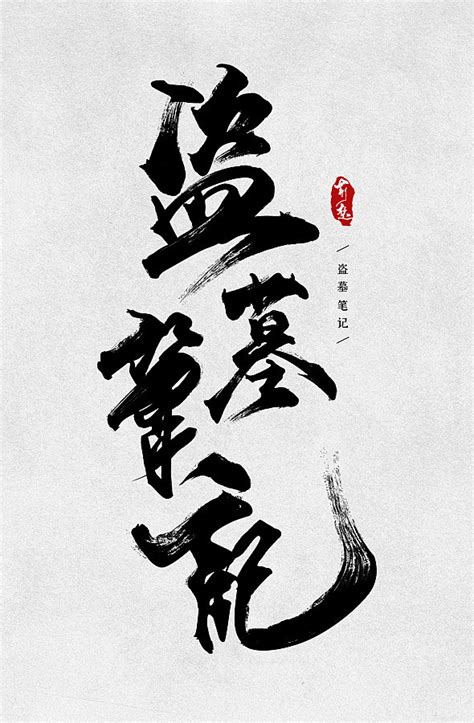 盜墓筆記
盗墓笔记